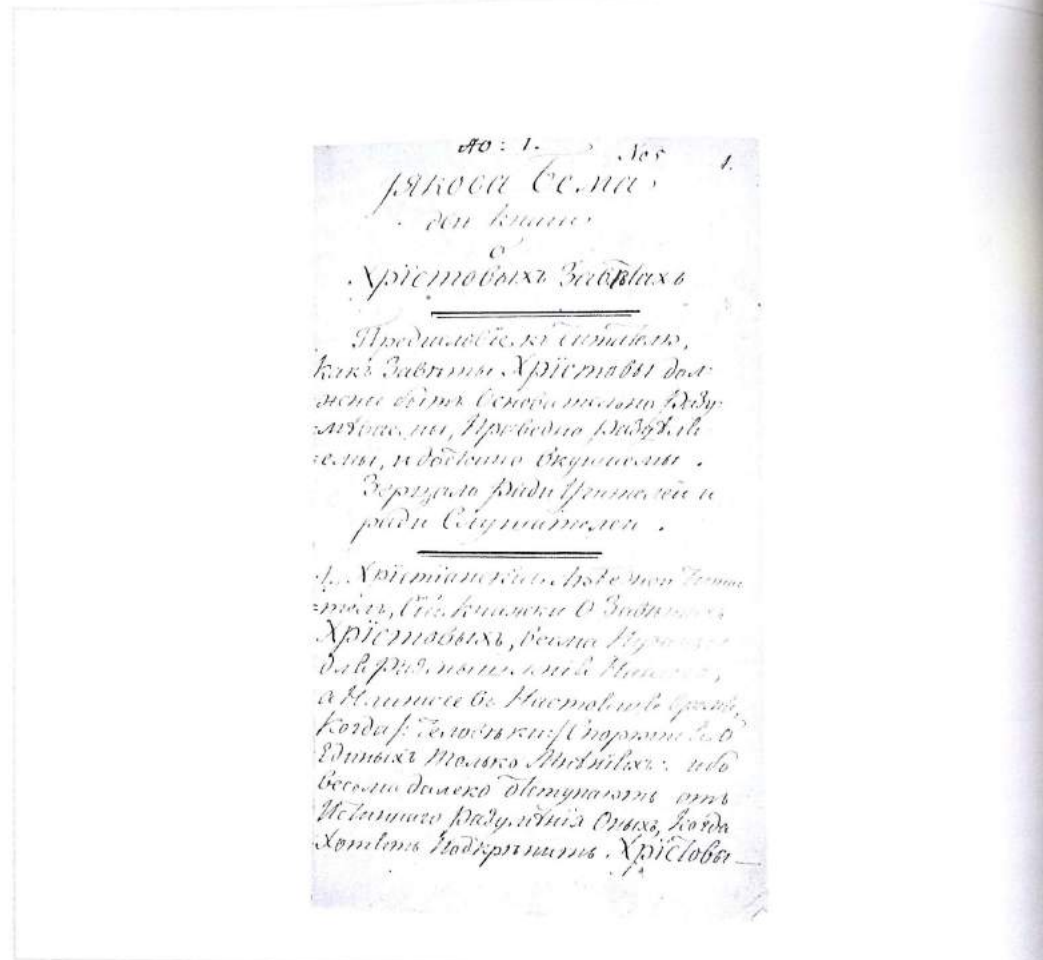 АО: 1. No 5 1.
Якова Бема,
двѣ книги
О
Хрїстовыхъ Завѣтахъ
Предисловїе къ Читателю,
Какъ Завѣты Хрїстовы дол-
жны быть Основательно Разу-
-мѣваемы, Праведно
-емы, и достойно вкушаемы.
Зерцало Ради Учителей и
ради Слушателей.
1. Хрїстїанскїй Любезной Чита-
=тель, Сїи Книжки О Завѣтахъ
Хрїстовыхъ, весма
для размышленїя
а въ Настоящее время,
Когда /: Человѣки :/ Спорятъ О
Единыхъ Только Мнѣнїяхъ: ибо
весма далеко Отступаютъ отъ
Истиннаго Разумѣнїя Оныхъ, Когда
Хотятъ Подкрѣпить Хрїстовы